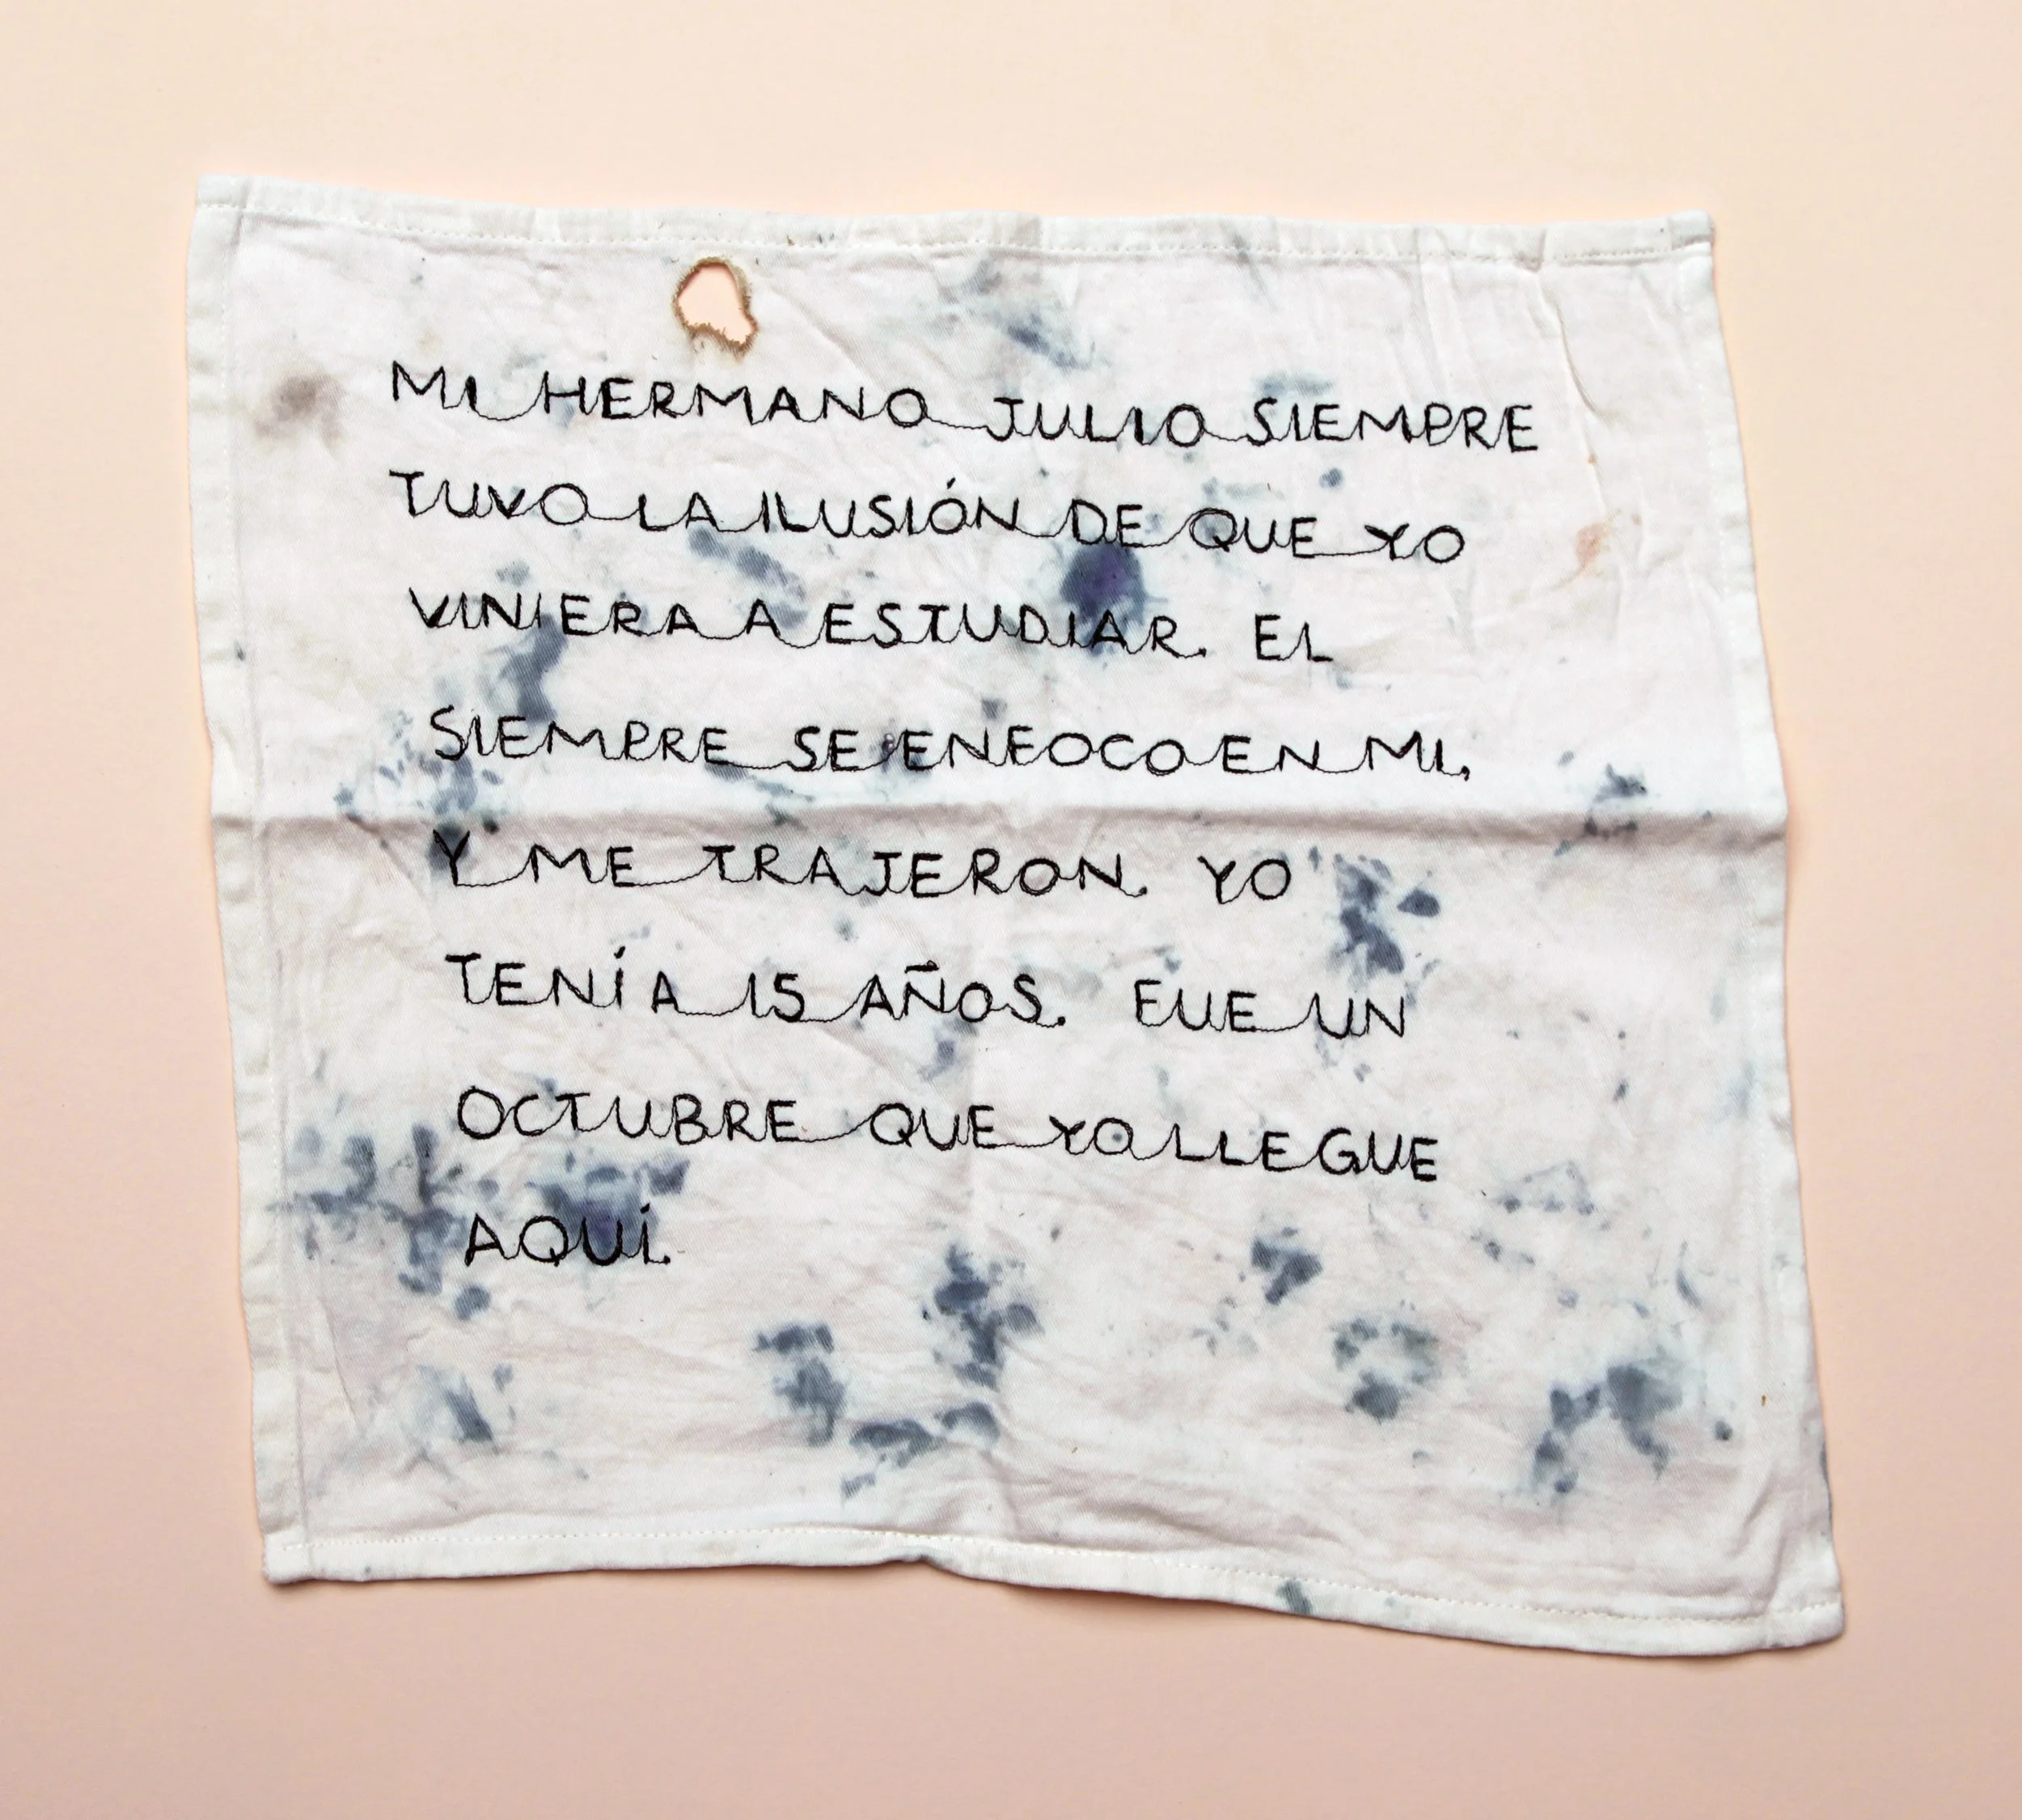 MI HERMANO JULIO SIEMPRE
TUVO LA ILUSIÓN DE QUE YO
VINIERA A ESTUDIAR. EL
SIEMPRE SE ENFOCO EN MI,
Y ME TRAJERON. YO
TENÍA 15 AÑOS. FUE UN
OCTUBRE QUE YO LLEGUE
AQUÍ.